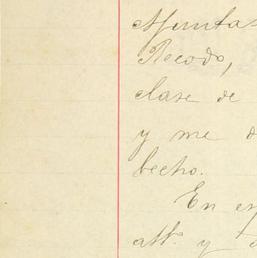 Apunta
Recodo,
clase de
y me
hecho.
En
att. y